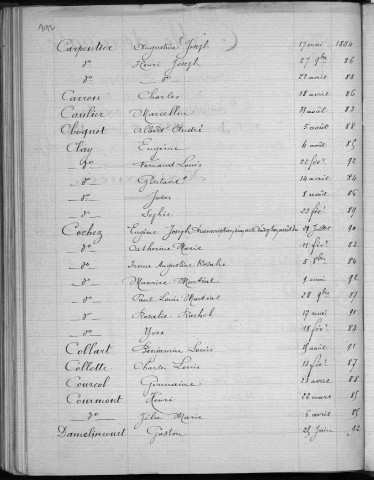 Carpentier Augustine Joseph 17 mai 1884
d° Henri Joseph 27 9bre 86
d° d° 22 avril 88
Carron Charles 18 avril 86
Caulier Marcelline 31 août 83
Choquet Albert André 5 août 88
Clay Eugénie 4 août 85
d° Fernand Louis 22 fév. 92
d° Gustave 14 avril 84
d° Jules 8 août 86
d° Sophie 22 fév. 89
Cochez Eugène Joseph 29 juillet 90
d° Catherine Marie 11 fév. 82
d° Irma Augustine Rosalie 5 84
d° Maurice Martial 9 mai 92
d° Paul Louis Martial 28 9bre 87
d° Rosalie Rachel 17 mai 91
d° Yves 18 fév. 84
Collart Benjamine Louis août 91
Collette Charles Louis fév. 87
Courcol Germaine avril 88
Courmont Henri 22 mars 85
d° Julie Marie 5 avril 85
Damelincourt Gaston 25 Juin 92